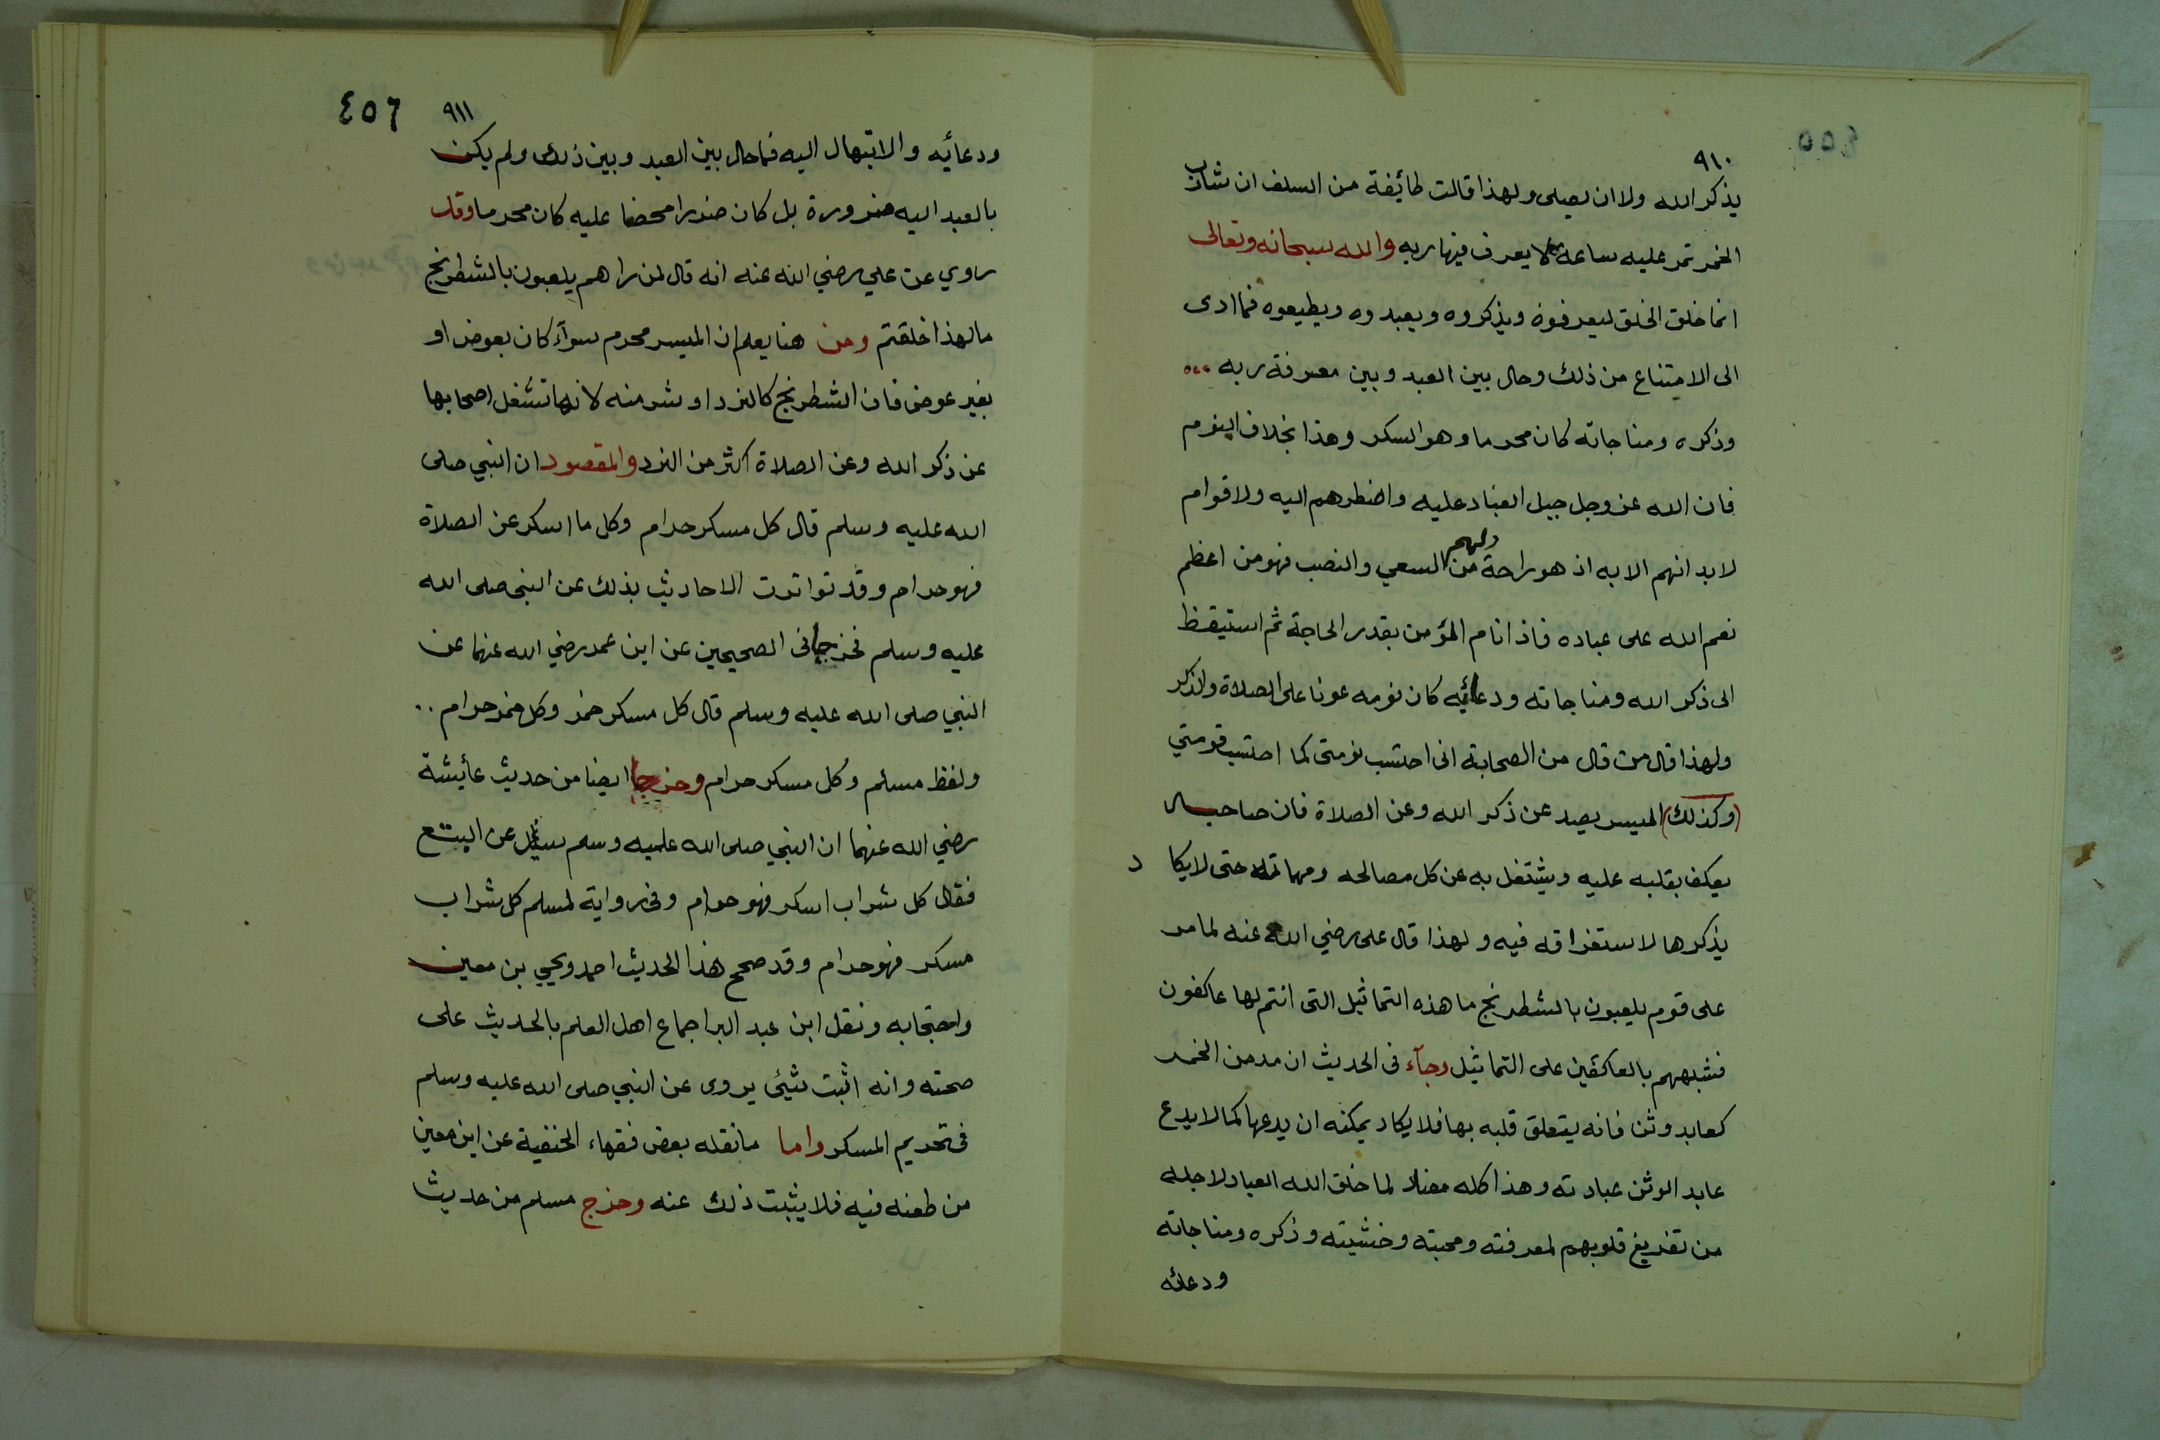 ٩١٠
يذكر الله ولا ان يصلى ولهذا قالت طائفة من السلف ان شارب
الخمر تمر عليه ساعة لا يعرف فيها ربه والله سبحانه وتعالى
انما خلق الخلق ليعرفوه ويذكروه ويعبدوه ويطيعوه فما ادى
الى الامتناع من ذلك وحال بين العبد وبين معرفة ربه
وذكره ومناجاته كان محرما وهو السكر وهذا بخلاف النوم
فان الله عز وجل جبل العباد عليه واضطرهم اليه ولا قوام
لابدانهم الا به اذ هو راحة لهم من السعي والنصب فهو من اعظم
نعم الله على عباده فاذا نام المؤمن بقدر الحاجة ثم استيقظ
الى ذكر الله ومناجاته ودعائه كان نومه عونا على الصلاة والذكر
ولهذا قال من قال من الصحابة انى احتسب نومتى كما احتسب قومتي
(وكذلك) الميسر يصد عن ذكر الله وعن الصلاة فان صاحبه
يعكف بقلبه عليه ويشتغل به عن كل مصالحه ومهماته حتى لا يكاد
يذكرها لاستغراقه فيه ولهذا قال على رضي الله عنه لما مر
على قوم يلعبون بالشطرنج ما هذه التماثيل التى انتم لها عاكفون
فشبههم بالعاكفين على التماثيل وجآء فى الحديث ان مدمن الخمر
كعابد وثن فانه يتعلق قلبه بها فلا يكاد يمكنه ان يدعها كما لا يدع
عابد الوثن عبادته وهذا كله مضاد لما خلق الله العباد لاجله
من تفريغ قلوبهم لمعرفته ومحبته وخشيته وذكره ومناجاته
ودعائه
٩١١ ٤٥٦
ودعائه والابتهال اليه فما حال بين العبد وبين ذلك ولم يكن
بالعبد اليه ضرورة بل كان ضررا محضا عليه كان محرما وقد
روي عن علي رضي الله عنه انه قال لمن راهم يلعبون بالشطرنج
ما لهذا خلقتم ومن هنا يعلم ان الميسر محرم سوآء كان بعوض او
بغير عوض فان الشطرنج كالنرد او شر منه لانها تشغل اصحابها
عن ذكر الله وعن الصلاة اكثر من النرد والمقصود ان النبي صلى
الله عليه وسلم قال كل مسكر حرام وكل ما اسكر عن الصلاة
فهو حرام وقد تواترت الاحاديث بذلك عن النبى صلى الله
عليه وسلم فخرجا فى الصحيحين عن ابن عمر رضي الله عنهما عن
النبي صلى الله عليه وسلم قال كل مسكر خمر وكل خمر حرام ..
ولفظ مسلم وكل مسكر حرام وخرجا ايضا من حديث عائيشة
رضي الله عنهما ان النبي صلى الله عليه وسلم سئل عن البتع
فقال كل شراب اسكر فهو حرام وفى رواية لمسلم كل شراب
مسكر فهو حرام وقد صحح هذا الحديث احمد ويحيى بن معين
واحتجا به ونقل ابن عبد البر اجماع اهل العلم بالحديث على
صحته وانه اثبت شيئ يروى عن النبي صلى الله عليه وسلم
فى تحريم المسكر واما ما نقله بعض فقهاء الحنفية عن ابن معين
من طعنه فيه فلا يثبت ذلك عنه وخرج مسلم من حديث